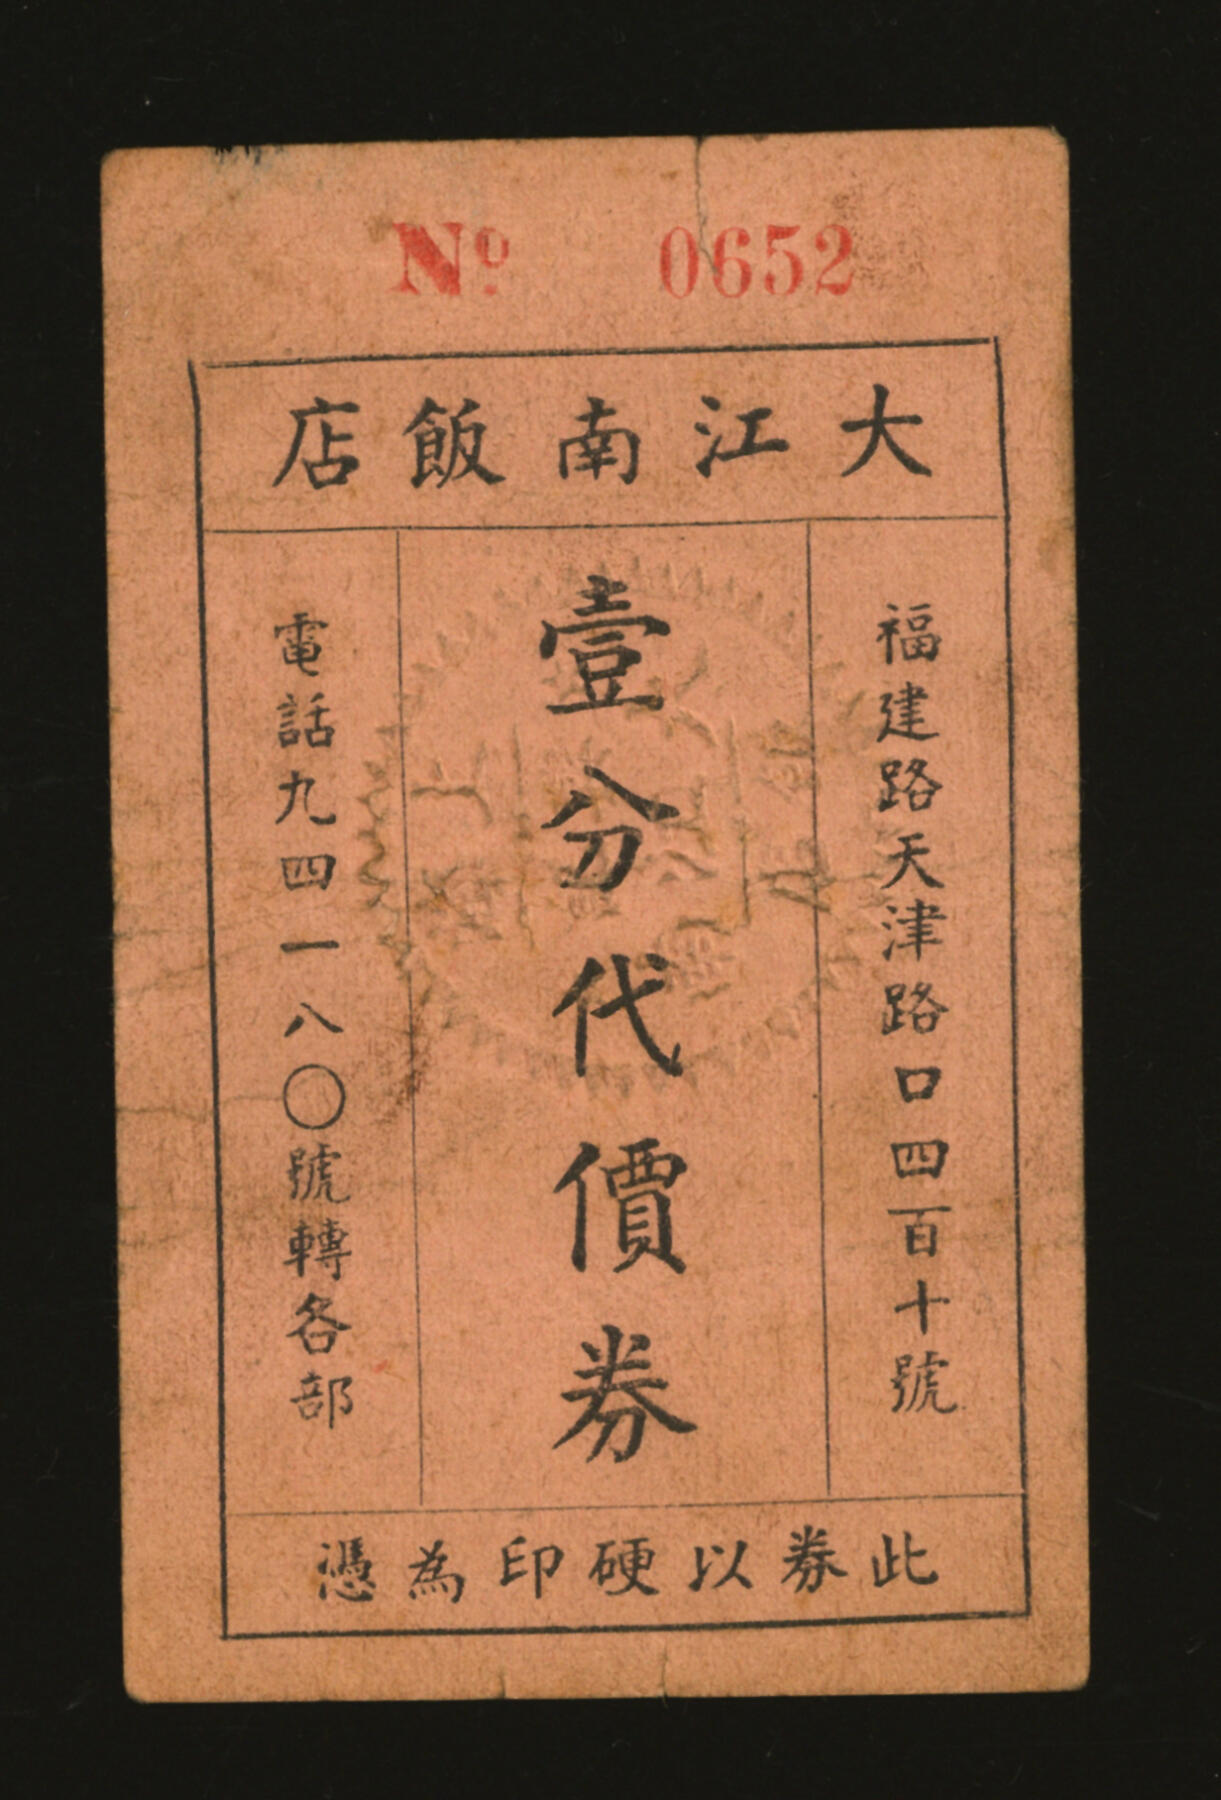 No 0652
大江南飯店
福建路天津路口四百十號
壹分代價券
電話九四一八〇號轉各部
此券以硬印為憑